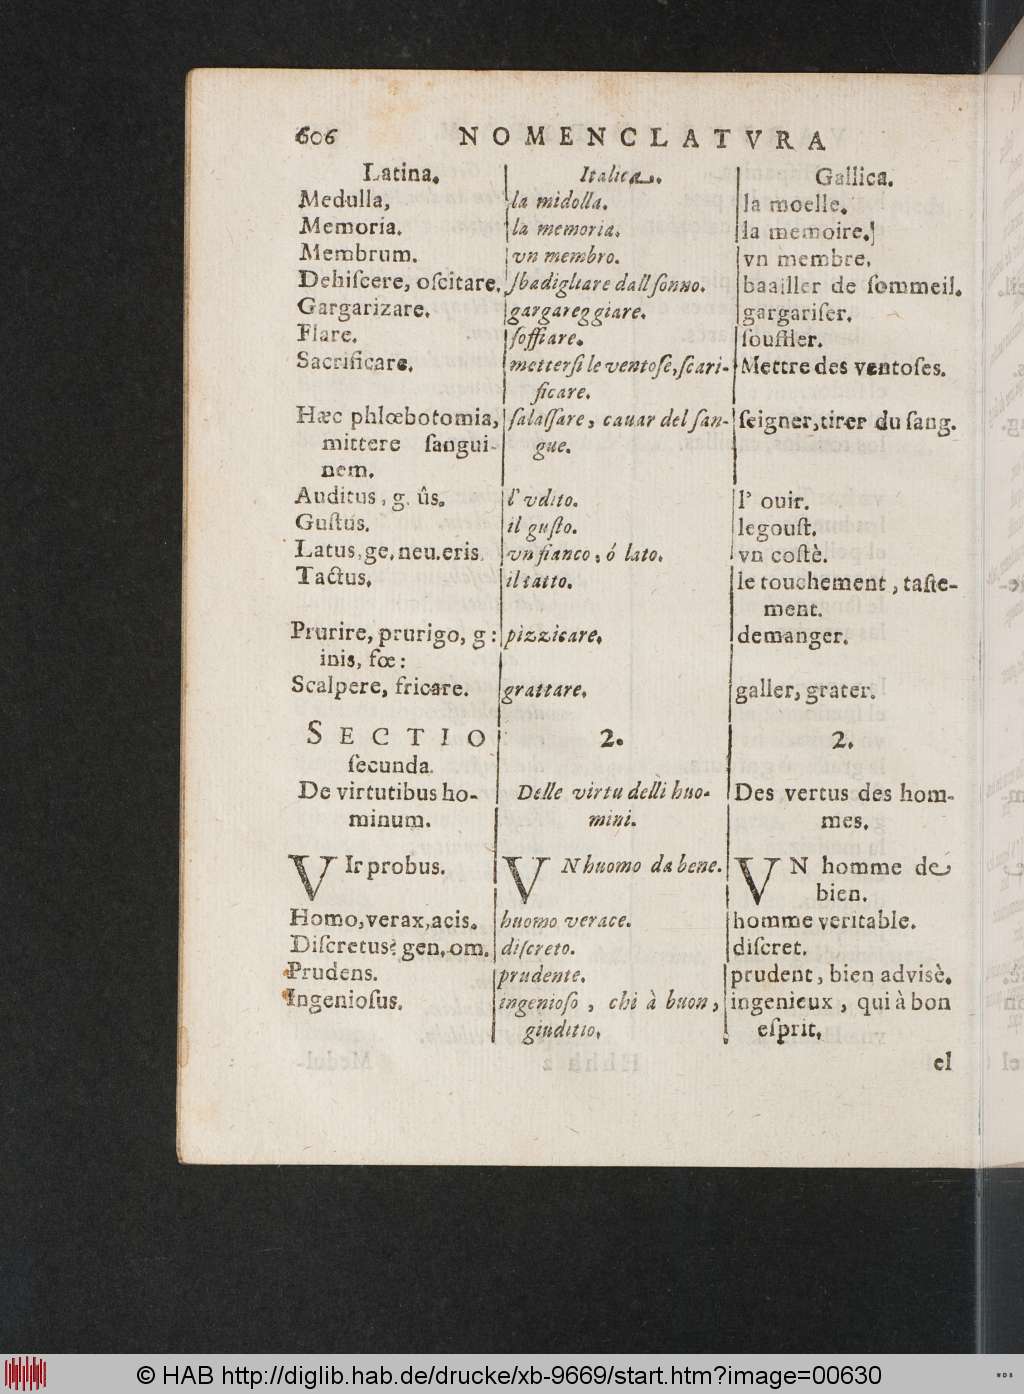 606 NOMENCLATVRA
Latina. Italica. Gallica.
Medulla, la midolla. la moelle.
Memoria. la memoria. la memoire.
Membrum. vn membro. vn membre.
Dehiſcere, oſcitare. ſbadigliare dall ſonno. baailler de ſommeil.
Gargarizare. gargareggiare. gargariſer.
Flare. ſoffiare. ſouffler.
Sacrificare. metterſi le ventoſe, ſcari- Mettre des ventoſes.
ficare.
Hæc phlœbotomia, ſalaſſare, cauar del ſan- ſeigner, tirer du ſang.
mittere ſangui- gue.
nem.
Auditus, g. ûs. l' vdito. l' ouir.
Guſtus. il guſto. legouſt.
Latus, ge, neu. eris. vn fianco, ó lato. vn coſtè.
Tactus. il tatto. le touchement, taſte-
ment.
Prurire, prurigo, g: pizzicare. demanger.
inis, fœ:
Scalpere, fricare. grattare. galler, grater.
SECTIO 2. 2.
ſecunda.
De virtutibus ho- Delle virtu delli huo- Des vertus des hom-
minum. mini. mes.
VIr probus. VN huomo da bene. VN homme de
bien.
Homo, verax, acis. huomo verace. homme veritable.
Diſcretus: gen, om. diſcreto. diſcret.
Prudens. prudente. prudent, bien advisè.
Ingenioſus. ingenioſo, chi à buon, ingenieux, qui à bon
giuditio. eſprit.
el
© HAB http://diglib.hab.de/drucke/xb-9669/start.htm?image=00630